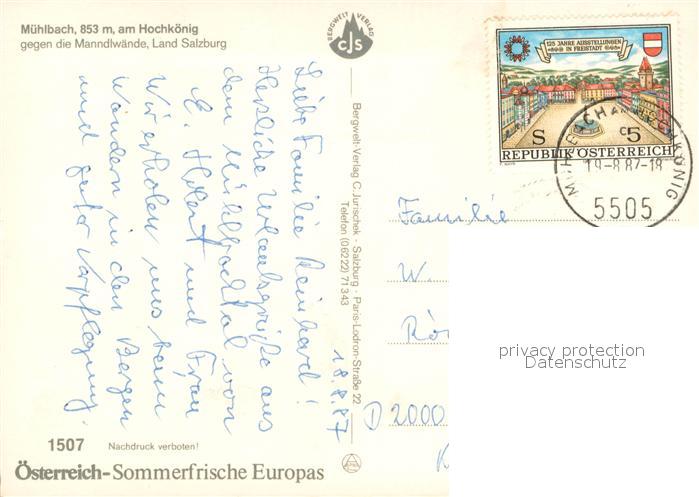 Mühlbach, 853 m, am Hochkönig
gegen die Manndlwände, Land Salzburg
BERGWELT VERLAG
CJS
125 JAHRE AUSSTELLUNGEN
IN FREISTADT
S 5
REPUBLIK ÖSTERREICH
MÜHLBACH AM HOCHKÖNIG
19.-8.87-18
5505
18.8.87
Liebe Familie Reinhard!
Herzliche Urlaubsgrüße aus
dem Mühlbachtal von
E. und Frau
Wir erholen uns beim
Wandern in den Bergen
und guter Verpflegung.
Bergwelt-Verlag C. Jurischek · Salzburg · Paris-Lodron-Straße 22
Telefon (06222) 71343
Familie
W.
D 2000
privacy protection
Datenschutz
1507 Nachdruck verboten!
Österreich-Sommerfrische Europas